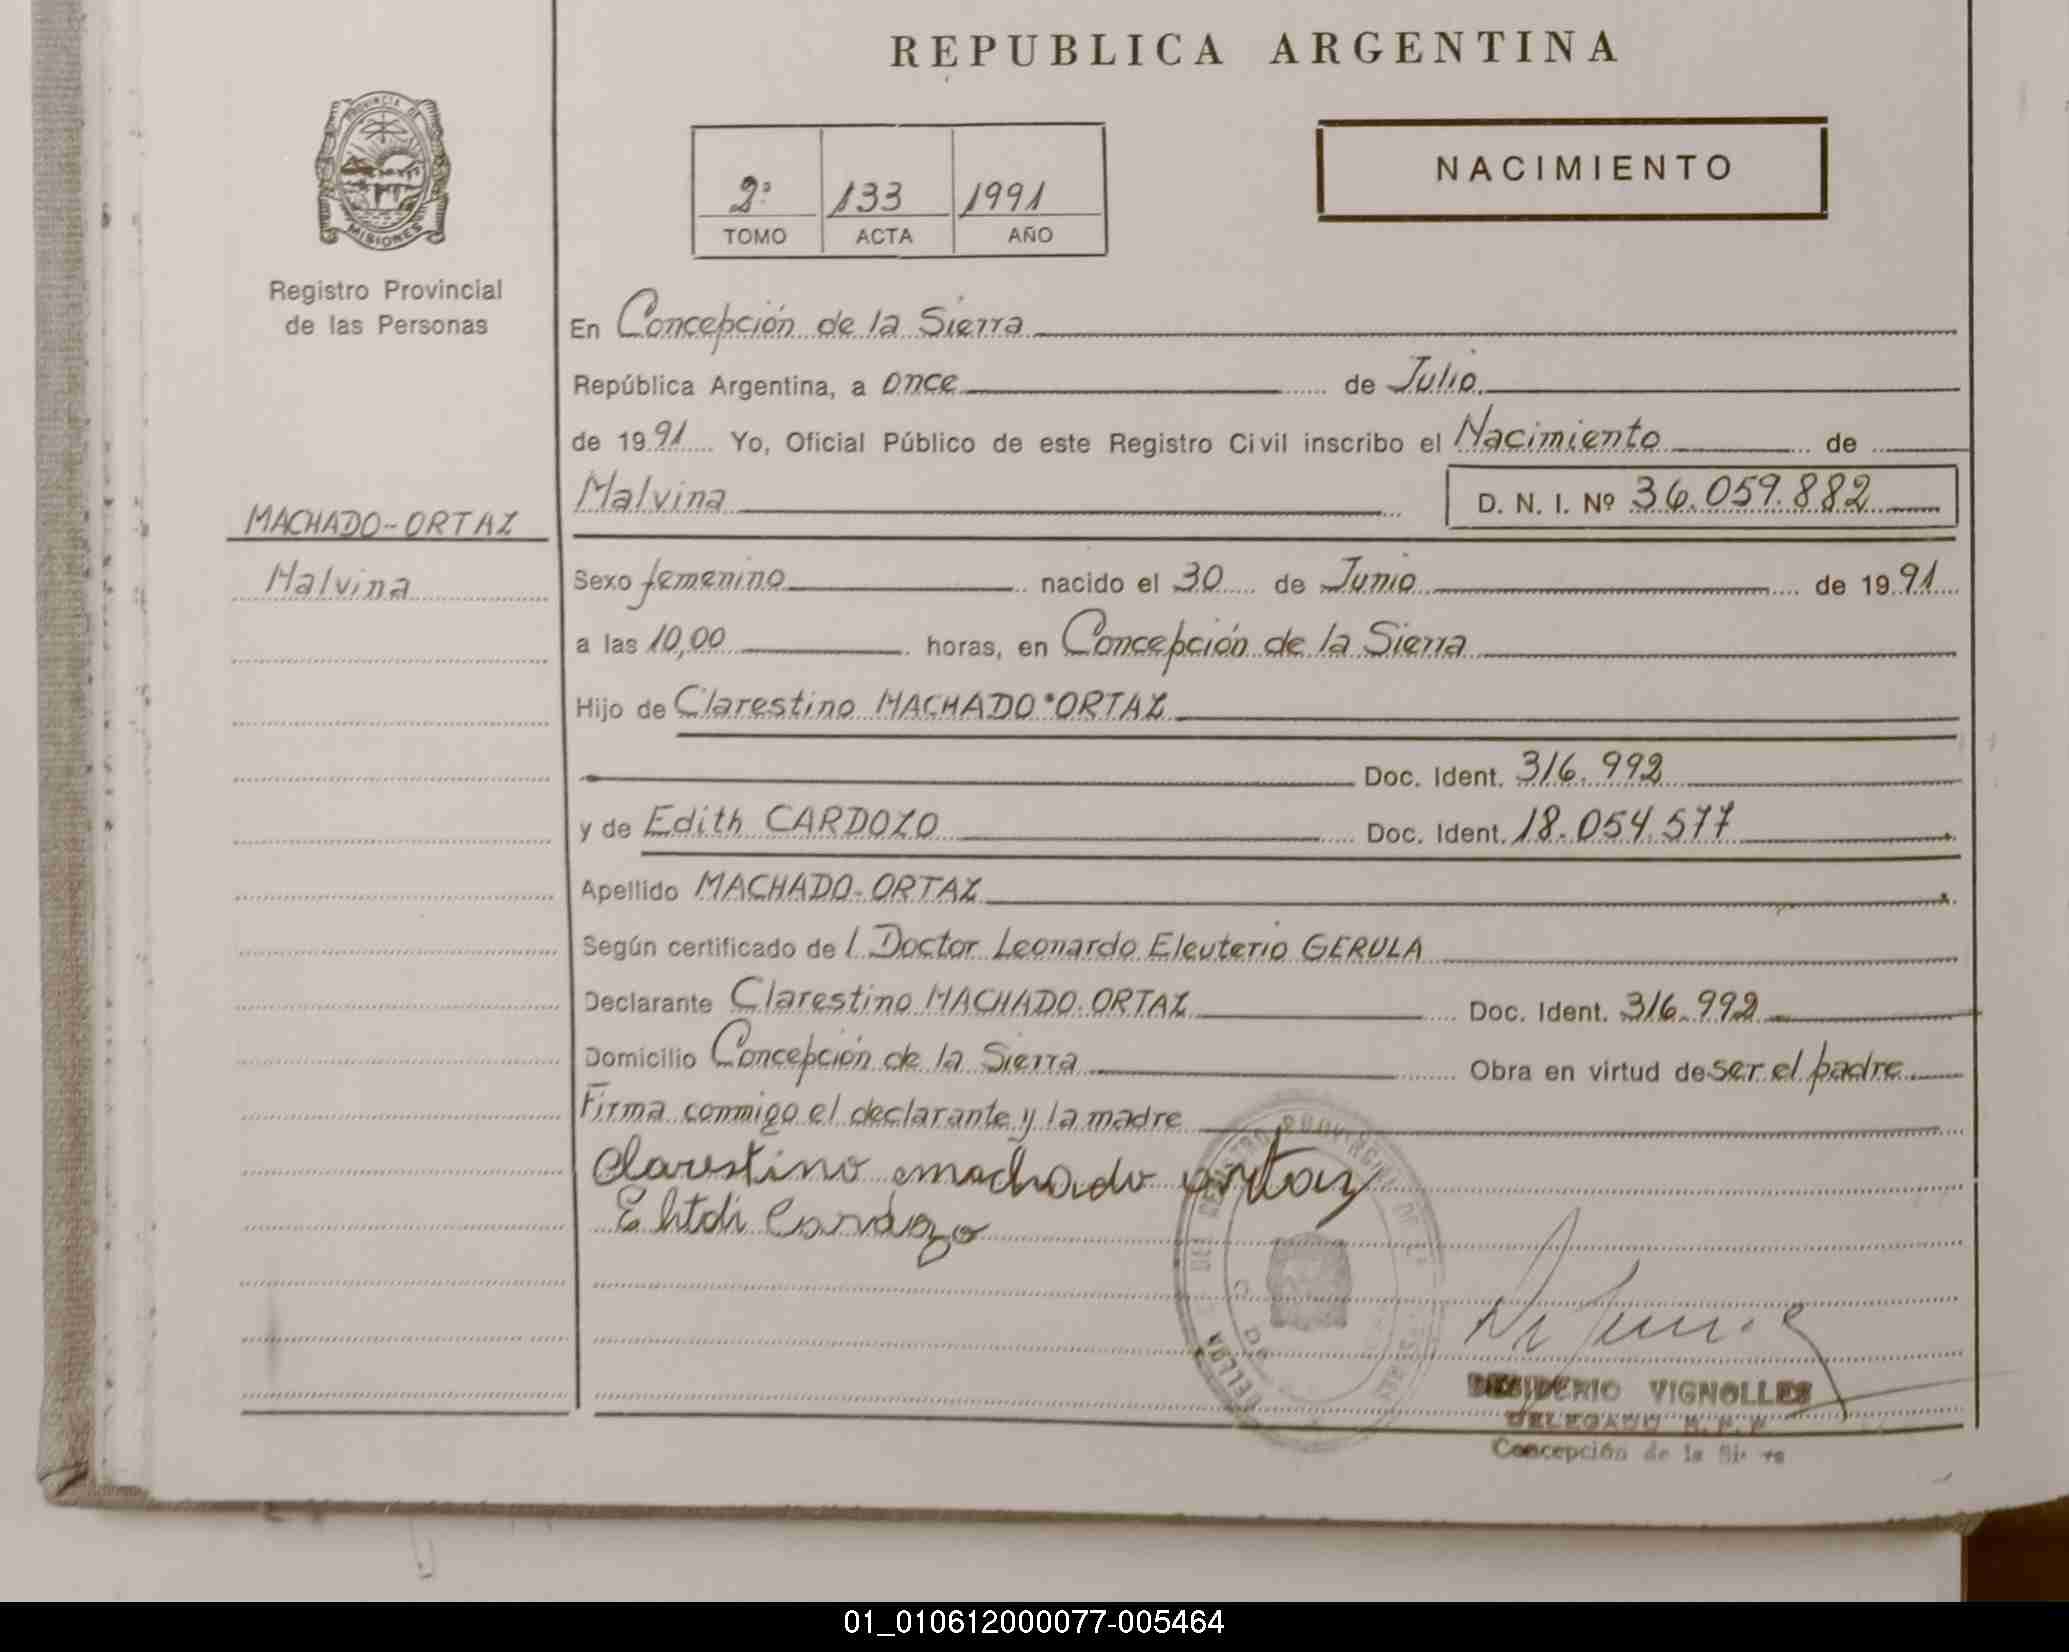 REPUBLICA ARGENTINA
PROVINCIA DE
MISIONES
Registro Provincial
de las Personas
NACIMIENTO
2º 133 1991
TOMO ACTA AÑO
En Concepción de la Sierra
República Argentina, a once de Julio
de 1991 Yo, Oficial Público de este Registro Civil inscribo el Nacimiento de
Malvina D. N. I. Nº 36.059.882
MACHADO-ORTAZ
Malvina
Sexo femenino nacido el 30 de Junio de 1991
a las 10,00 horas, en Concepción de la Sierra
Hijo de Clarestino MACHADO-ORTAZ
Doc. Ident. 316.992
y de Edith CARDOZO Doc. Ident. 18.054.577
Apellido MACHADO-ORTAZ
Según certificado de l Doctor Leonardo Eleuterio GERULA
Declarante Clarestino MACHADO-ORTAZ Doc. Ident. 316.992
Domicilio Concepción de la Sierra Obra en virtud de ser el padre
Firma conmigo el declarante y la madre
Clarestino machado ortaz
Ehtdi Cardozo
DESIDERIO VIGNOLLES
DELEGADO R. P. P.
Concepción de la
01_010612000077-005464